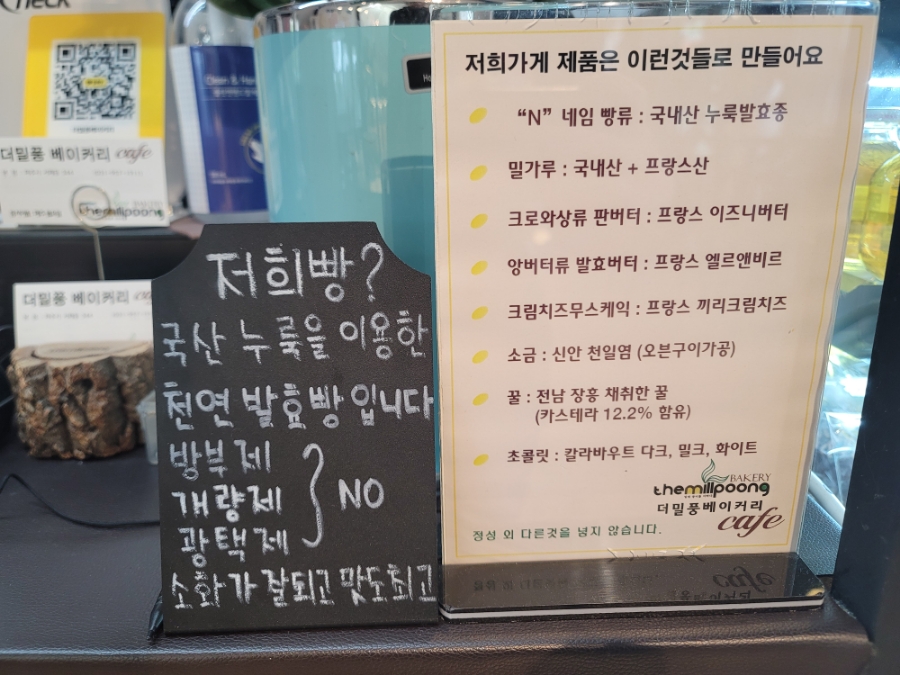 heck
더밀풍 베이커리 cafe
themillpoong
더밀풍 베이커리
저희빵?
국산 누룩을 이용한
천연 발효빵 입니다
방부제
개량제
광택제
NO
소화가 잘되고 맛도최고
저희가게 제품은 이런것들로 만들어요
“N” 네임 빵류 : 국내산 누룩발효종
밀가루 : 국내산 + 프랑스산
크로와상류 판버터 : 프랑스 이즈니버터
앙버터류 발효버터 : 프랑스 엘르앤비르
크림치즈무스케익 : 프랑스 끼리크림치즈
소금 : 신안 천일염 (오븐구이가공)
꿀 : 전남 장흥 채취한 꿀
(카스테라 12.2% 함유)
초콜릿 : 칼라바우트 다크, 밀크, 화이트
BAKERY
themillpoong
더밀풍베이커리
cafe
정성 외 다른것을 넣지 않습니다.